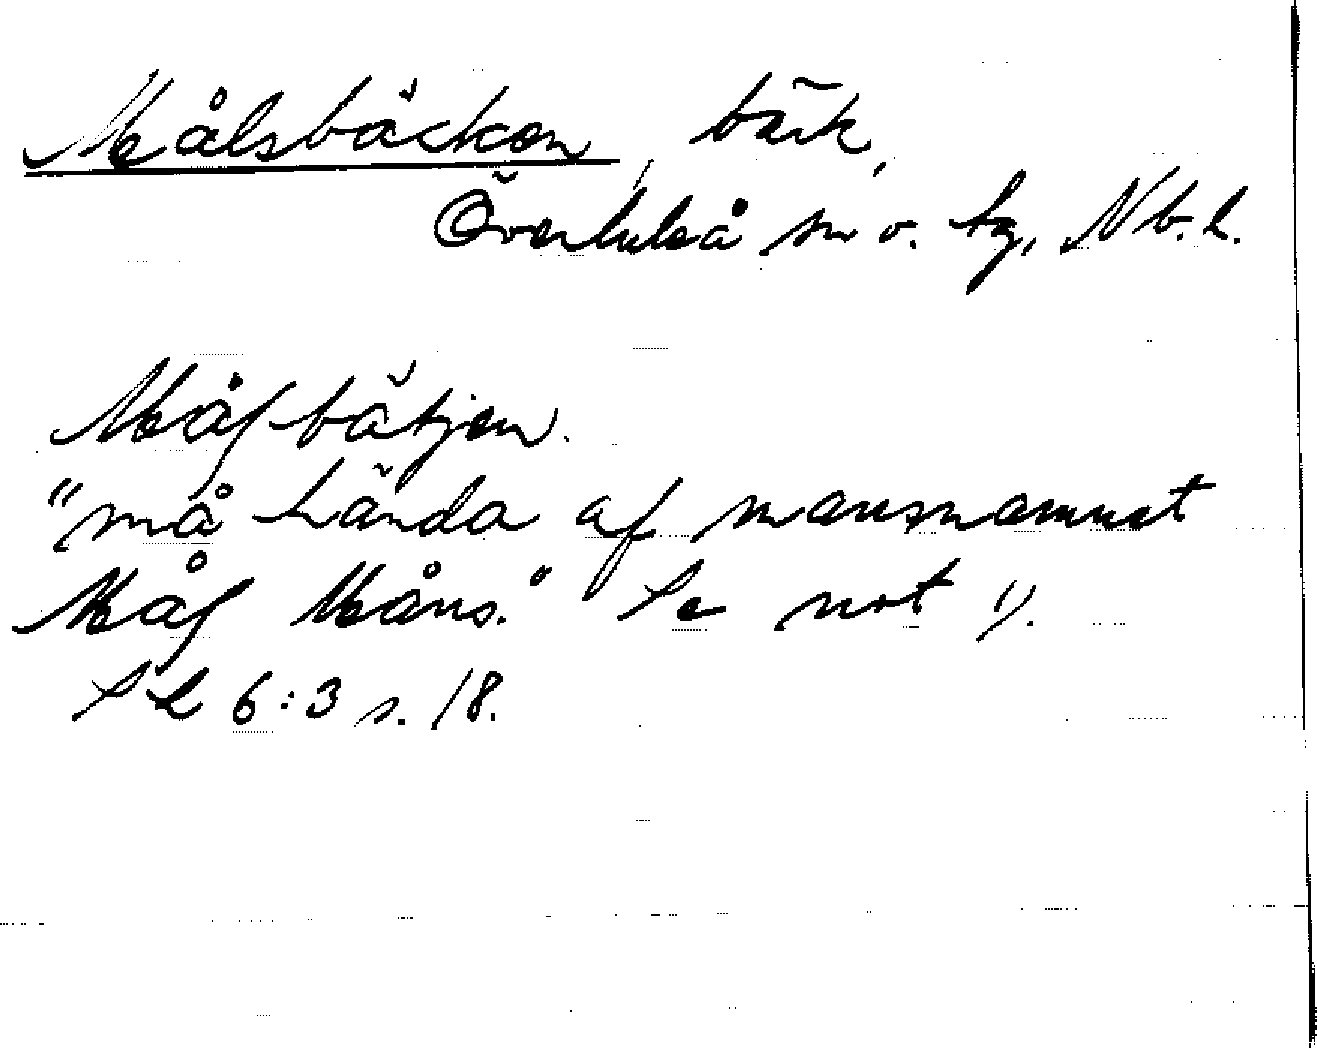 Målsbäcken, bäck,
Överluleå sn o. tg, Nb. l.
Måſbätjen.
"må hända af mansnamnet
Måſ Måns." Se not 1).
SL 6:3 s. 18.